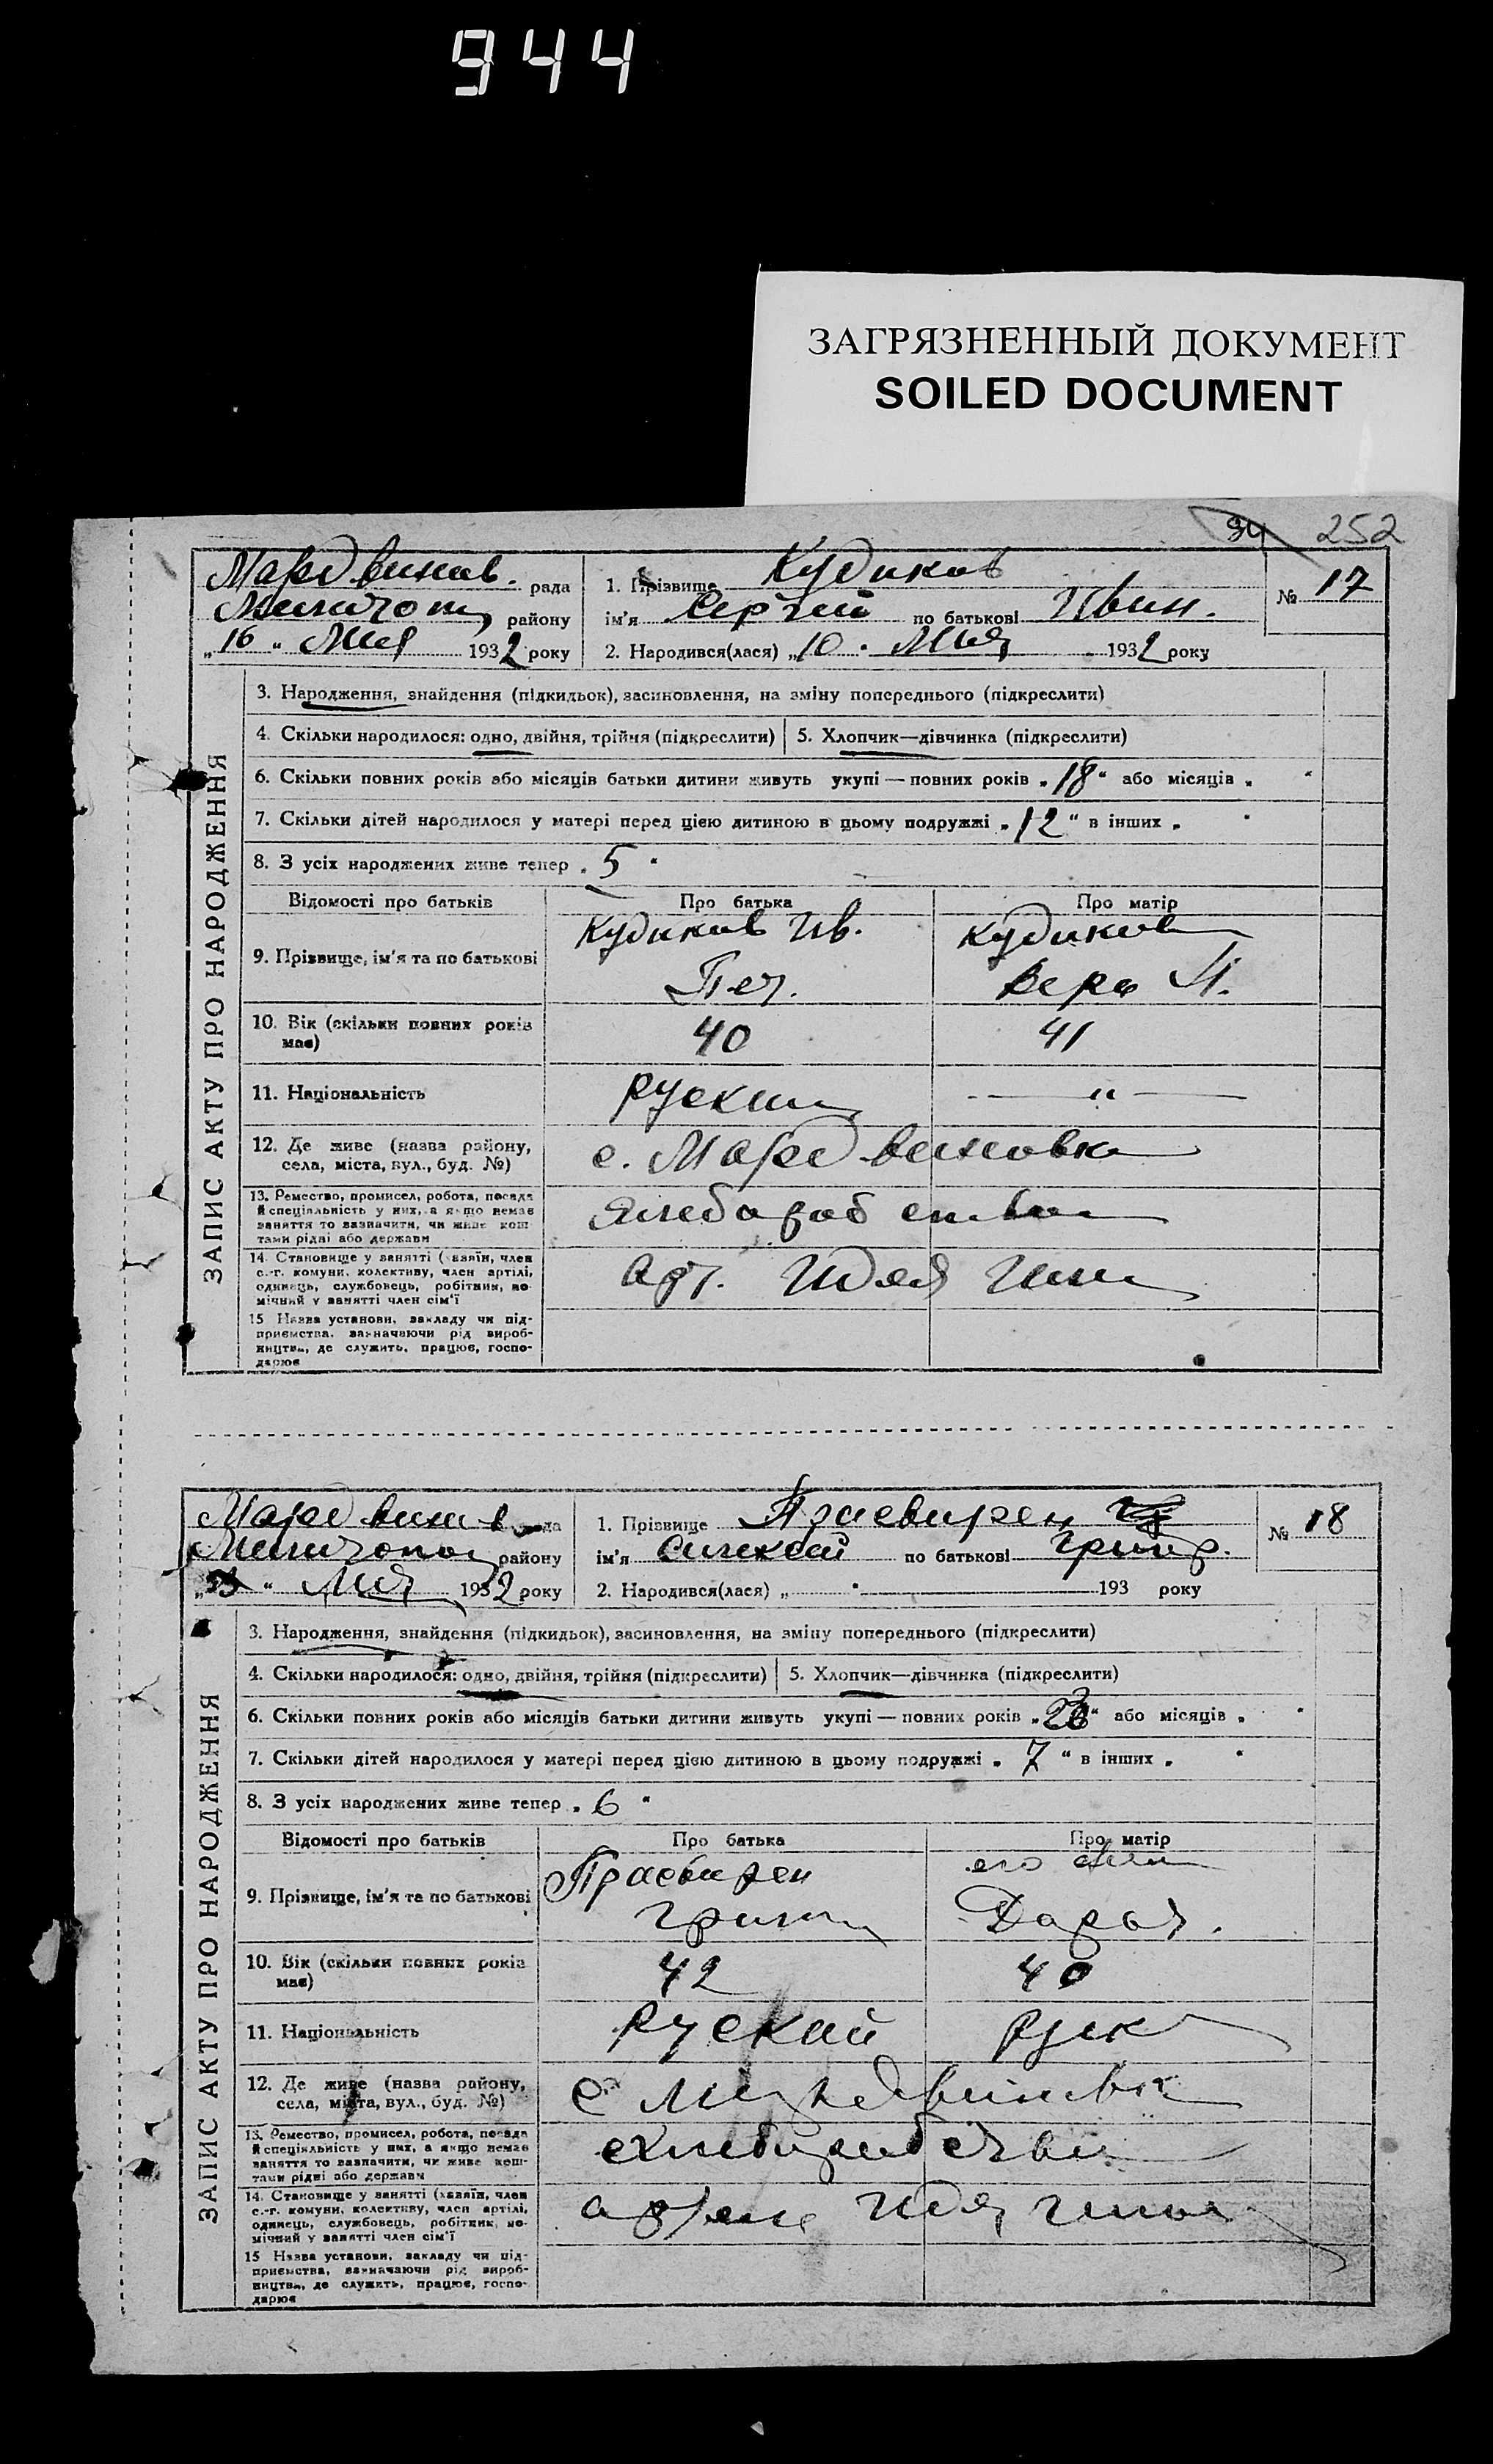 944
ЗАГРЯЗНЕННЫЙ ДОКУМЕНТ
SOILED DOCUMENT
252
рада
району
„16 “ Мая 1932 року
1. Прізвище Кудинов
ім'я Сергей по батькові Иван.
2. Народився(лася) „10 “ Мая 1932 року
№ 17
ЗАПИС АКТУ ПРО НАРОДЖЕННЯ
3. Народження, знайдення (підкидьок), засиновлення, на зміну попереднього (підкреслити)
4. Скільки народилося: одно, двійня, трійня (підкреслити)
5. Хлопчик—дівчинка (підкреслити)
6. Скільки повних років або місяців батьки дитини живуть укупі — повних років „18“ або місяців „ “
7. Скільки дітей народилося у матері перед цією дитиною в цьому подружжі „12“ в інших „ “
8. З усіх народжених живе тепер „5“
Відомості про батьків
Про батька
Про матір
9. Прізвище, ім'я та по батькові
Кудинов Ив.
Пет.
Вера
10. Вік (скільки повних років
має)
40
41
11. Національність
руский
— “ —
12. Де живе (назва району,
села, міста, вул., буд. №)
с. Мордвиновка
13. Ремество, промисел, робота, посада
й спеціяльність у них, а якщо немає
заняття то зазначити, чи живе кош-
тами рідні або держави
14. Становище у занятті (хазяїн, член
с.-г. комуни, колективу, член артілі,
одинець, службовець, робітник, по-
мічний у занятті член сім'ї
Арт. Идея
15 Назва установи, закладу чи під-
приємства, зазначаючи рід вироб-
ництва, де служить, працює, госпо-
дарює
рада
району
“ Мая 1932 року
1. Прізвище
ім'я Алексей по батькові Григор.
2. Народився(лася) „ “ 193 року
№ 18
ЗАПИС АКТУ ПРО НАРОДЖЕННЯ
3. Народження, знайдення (підкидьок), засиновлення, на зміну попереднього (підкреслити)
4. Скільки народилося: одно, двійня, трійня (підкреслити)
5. Хлопчик—дівчинка (підкреслити)
6. Скільки повних років або місяців батьки дитини живуть укупі — повних років „ “ або місяців „ “
7. Скільки дітей народилося у матері перед цією дитиною в цьому подружжі „7“ в інших „ “
8. З усіх народжених живе тепер „6“
Відомості про батьків
Про батька
Про матір
9. Прізвище, ім'я та по батькові
его
10. Вік (скільки повних років
має)
42
40
11. Національність
руский
руск
12. Де живе (назва району,
села, міста, вул., буд. №)
с
13. Ремество, промисел, робота, посада
й спеціяльність у них, а якщо немає
заняття то зазначити, чи живе кош-
тами рідні або держави
14. Становище у занятті (хазяїн, член
с.-г. комуни, колективу, член артілі,
одинець, службовець, робітник, по-
мічний у занятті член сім'ї
Идея
15 Назва установи, закладу чи під-
приємства, зазначаючи рід вироб-
ництва, де служить, працює, госпо-
дарює